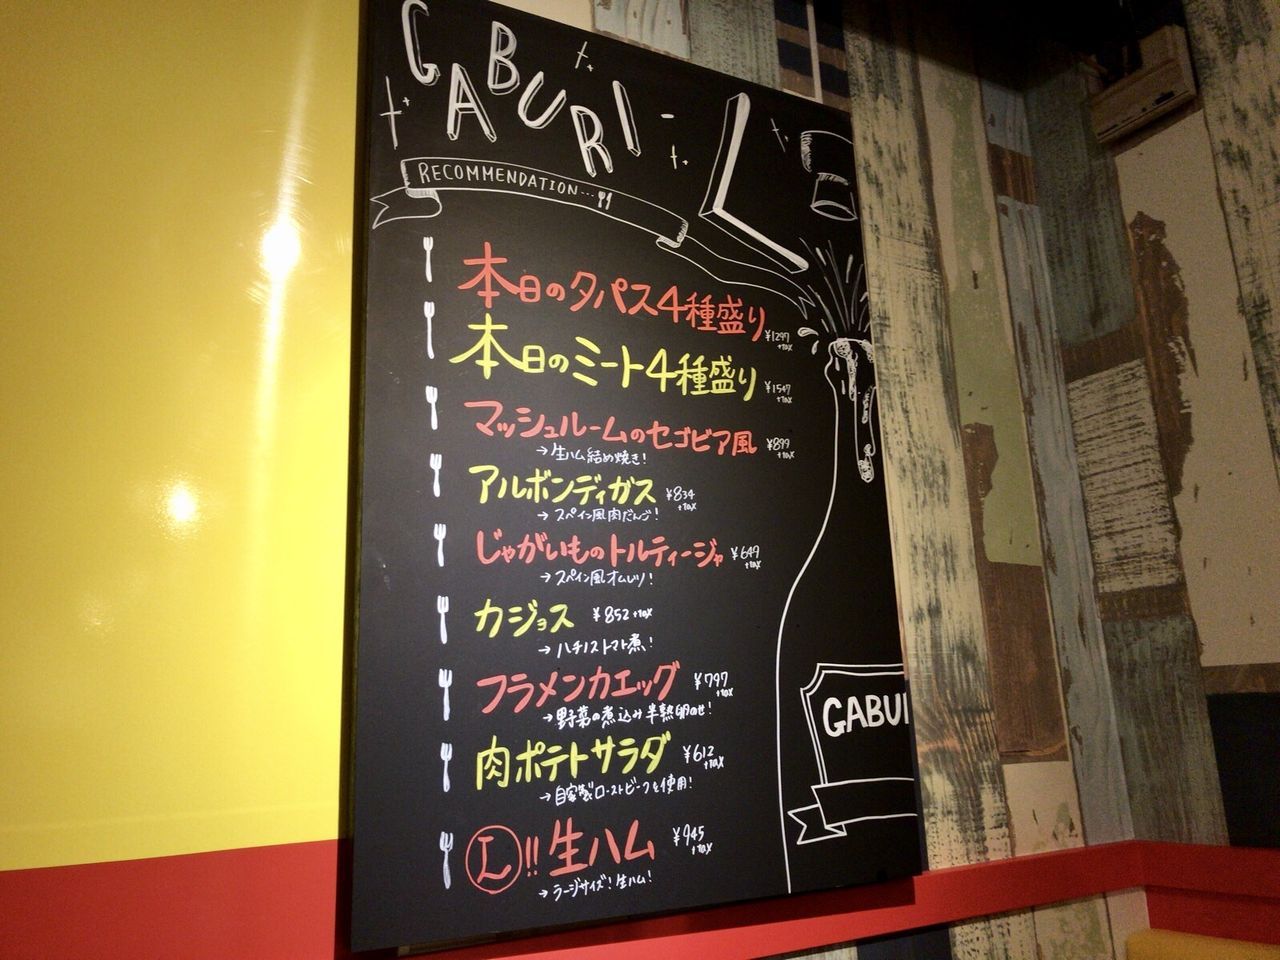 GABURI-L
RECOMMENDATION...
本日のタパス4種盛り ¥1297 +tax
本日のミート4種盛り ¥1547 +tax
マッシュルームのセゴビア風 ¥899 +tax
→生ハム結め焼き!
アルボンディガス ¥834 +tax
→スペイン風肉だんご!
じゃがいものトルティージャ ¥649 +tax
→スペイン風オムレツ!
カジョス ¥852 +tax
→ハチノストマト煮!
フラメンカエッグ ¥797 +tax
→野菜の煮込み半熟卵のせ!
肉ポテトサラダ ¥612 +tax
→自家製ローストビーフを使用!
L!!生ハム ¥945 +tax
→ラージサイズ!生ハム!
GABUI